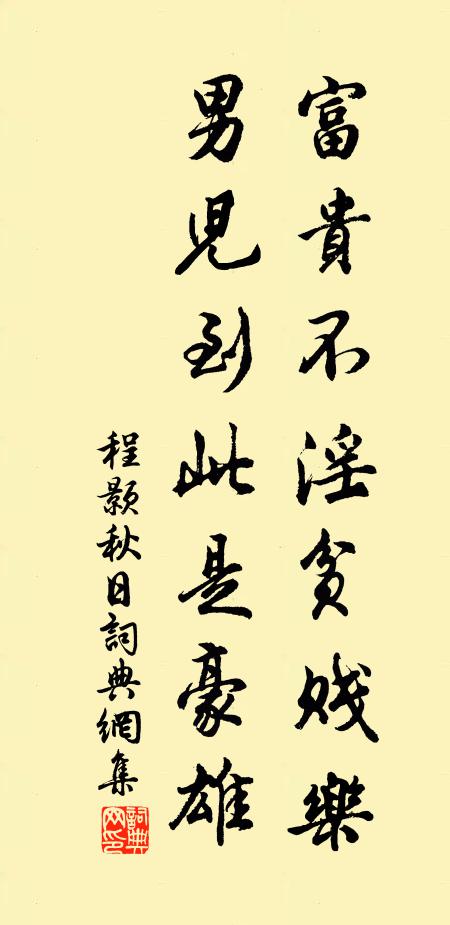 富貴不淫貧賤樂
男兒到此是豪雄
程顥秋日詞典網集
詞典
网印